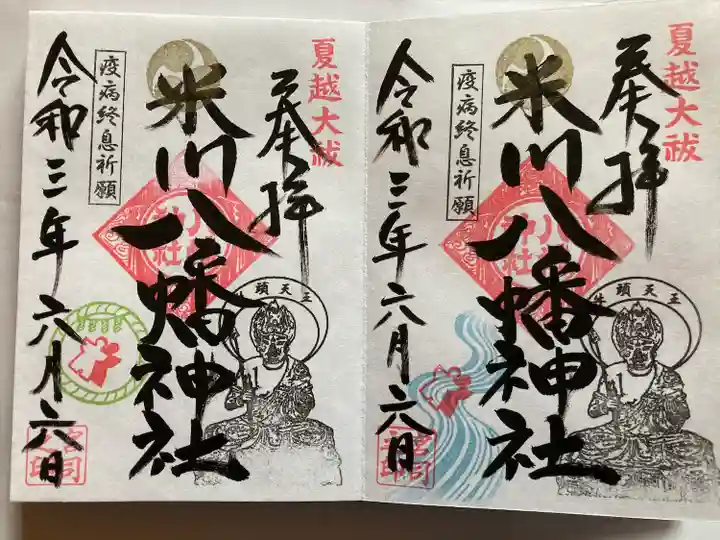 夏越大祓
奉拝
米川八幡神社
疫病終息祈願
令和三年六月六日
牛頭天王
宮司之印
夏越大祓
奉拝
米川八幡神社
疫病終息祈願
令和三年六月六日
牛頭天王